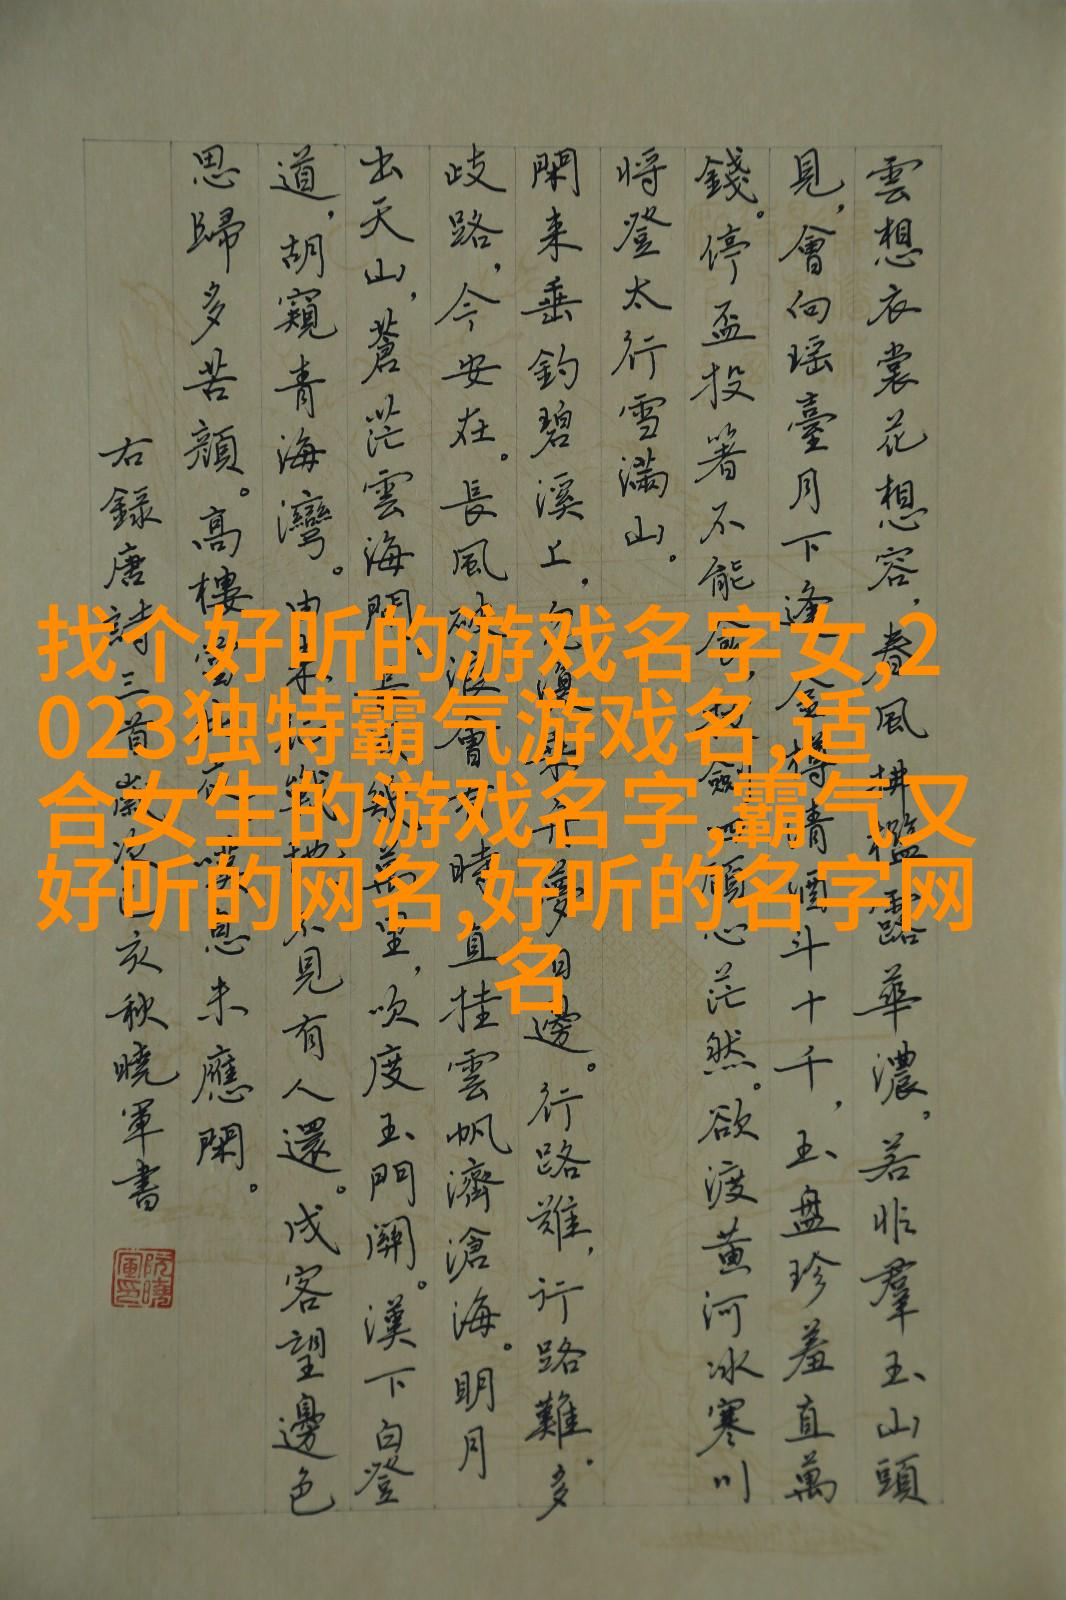 雲想衣裳花想容,春風拂檻露華濃。若非羣玉山頭
見,會向瑶臺月下逢。金樽清酒斗十千,玉盤珍羞直萬
錢。停盃投箸不能食,拔劍四顧心茫然。欲渡黄河冰寒川
将登太行雪滿山。
閑来垂釣碧溪上,乘舟夢日邊。行路難,行路難,多
歧路,今安在。長風破浪會有時,直挂雲帆濟滄海。明月
出天山,蒼茫雲海間。長風幾萬里,吹度玉門關。漢下白登
道,胡窺青海灣。由来征戰地,不見有人還。戍客望邊色
思歸多苦顔。高樓當此夜,嘆息未應閑。
右録唐詩三首歲次己亥秋曉軍書
阮曉軍印
找个好听的游戏名字女,2
023独特霸气游戏名,适
合女生的游戏名字,霸气又
好听的网名,好听的名字网
名